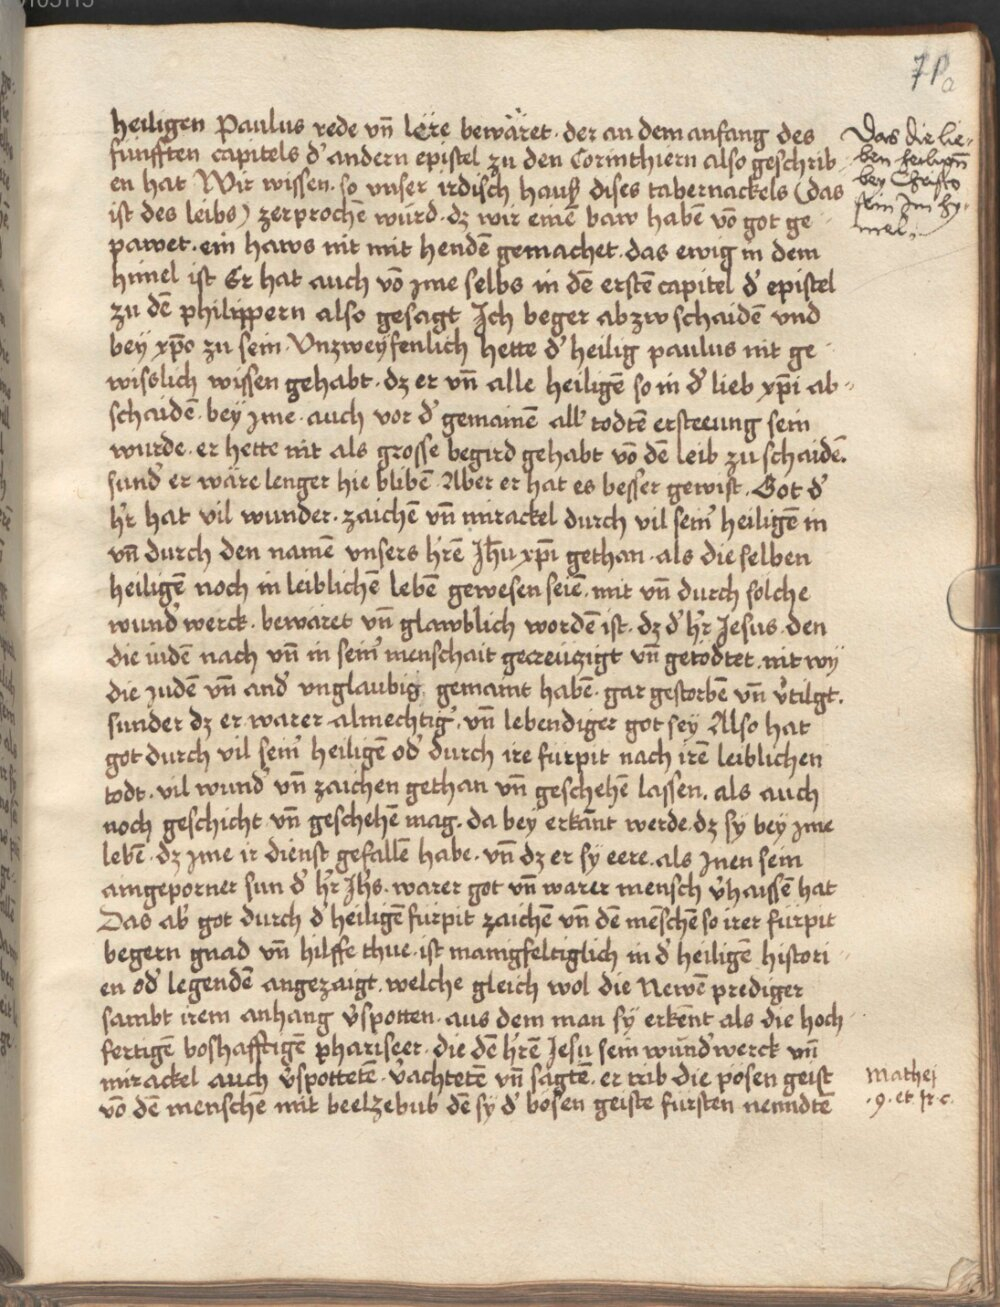 71a
heiligen Paulus rede vn̄ lere bewäret · der an dem anfang des
funfften capitels d' andern epistel zu den Corinthiern also geschrib
en hat Wir wissen · so vnser irdisch hauß dises tabernackels (das
ist des leibs) zerprochē wurd · dz wir einē baw habē vō got ge
pawet · ein haws nit mit hendē gemachet · das ewig in dem
himel ist Er hat auch vō jme selbs in dē erstē capitel d' epistel
zu dē philippern also gesagt Ich beger abzwschaidē vnd
bey xp̄o zu sein · Vnzweyfenlich hette d' heilig paulus nit ge
wisslich wissen gehabt · dz er vn̄ alle heiligē so in d' lieb xp̄i ab
schaidē · bey jme · auch vor d' gemainē all' todtē ersteeung sein
wurde · er hette nit als grosse begird gehabt vō dē leib zu schaidē.
sund' er wäre lenger hie blibē · Aber er hat es besser gewist · Got d'
h'r hat vil wunder · zaichē vn̄ mirackel durch vil sein' heiligē in
vn̄ durch den namē vnsers h'rē Jh̄u xp̄i gethan · als die selben
heiligē noch in leiblichē lebē gewesen seiē · mit vn̄ durch solche
wund'werck · bewäret vn̄ glawblich wordē ist · dz d' h'r Jesus · den
die iudē nach vn̄ in sein' menschait gecreuzigt vn̄ getodtet · nit wÿ
die judē vn̄ and' vnglaubig gemaint habē · gar gestorbē vn̄ v'tilgt.
sunder dz er warer almechtig' vn̄ lebendiger got sey Also hat
got durch vil sein' heiligē od' durch ire furpit nach irē leiblichen
todt · vil wund' vn̄ zaichen gethan vn̄ geschehē lassen · als auch
noch geschicht vn̄ geschehē mag · da bey erkānt werde · dz sy bey jme
lebē · dz jme ir dienst gefallē habe · vn̄ dz er sy eere · als jnen sein
aingeporner sun d' h'r Jh̄s · warer got vn̄ warer mensch v'haissē hat
Das ab' got durch d' heiligē furpit zaichē vn̄ dē mēschē so irer furpit
begern gnad vn̄ hilffe thue · ist manigfeltiglich in d' heiligē histori
en od' legendē angezaigt · welche gleich wol die Newē prediger
sambt irem anhang v'spotten · aus dem man sy erkēnt als die hoch
fertigē boshafftigē phariseer · die dē h'rē Jesu sein wund'werck vn̄
mirackel auch v'spottetē · v'achtetē vn̄ sagtē · er trib die pösen geist
vō dē menschē mit beelzebub dē sy d' bösen geiste fursten nenndtē
Das die lie-
ben heiligen
bey Christo
sein Im hy-
mel.
Mathej
· 9 · et